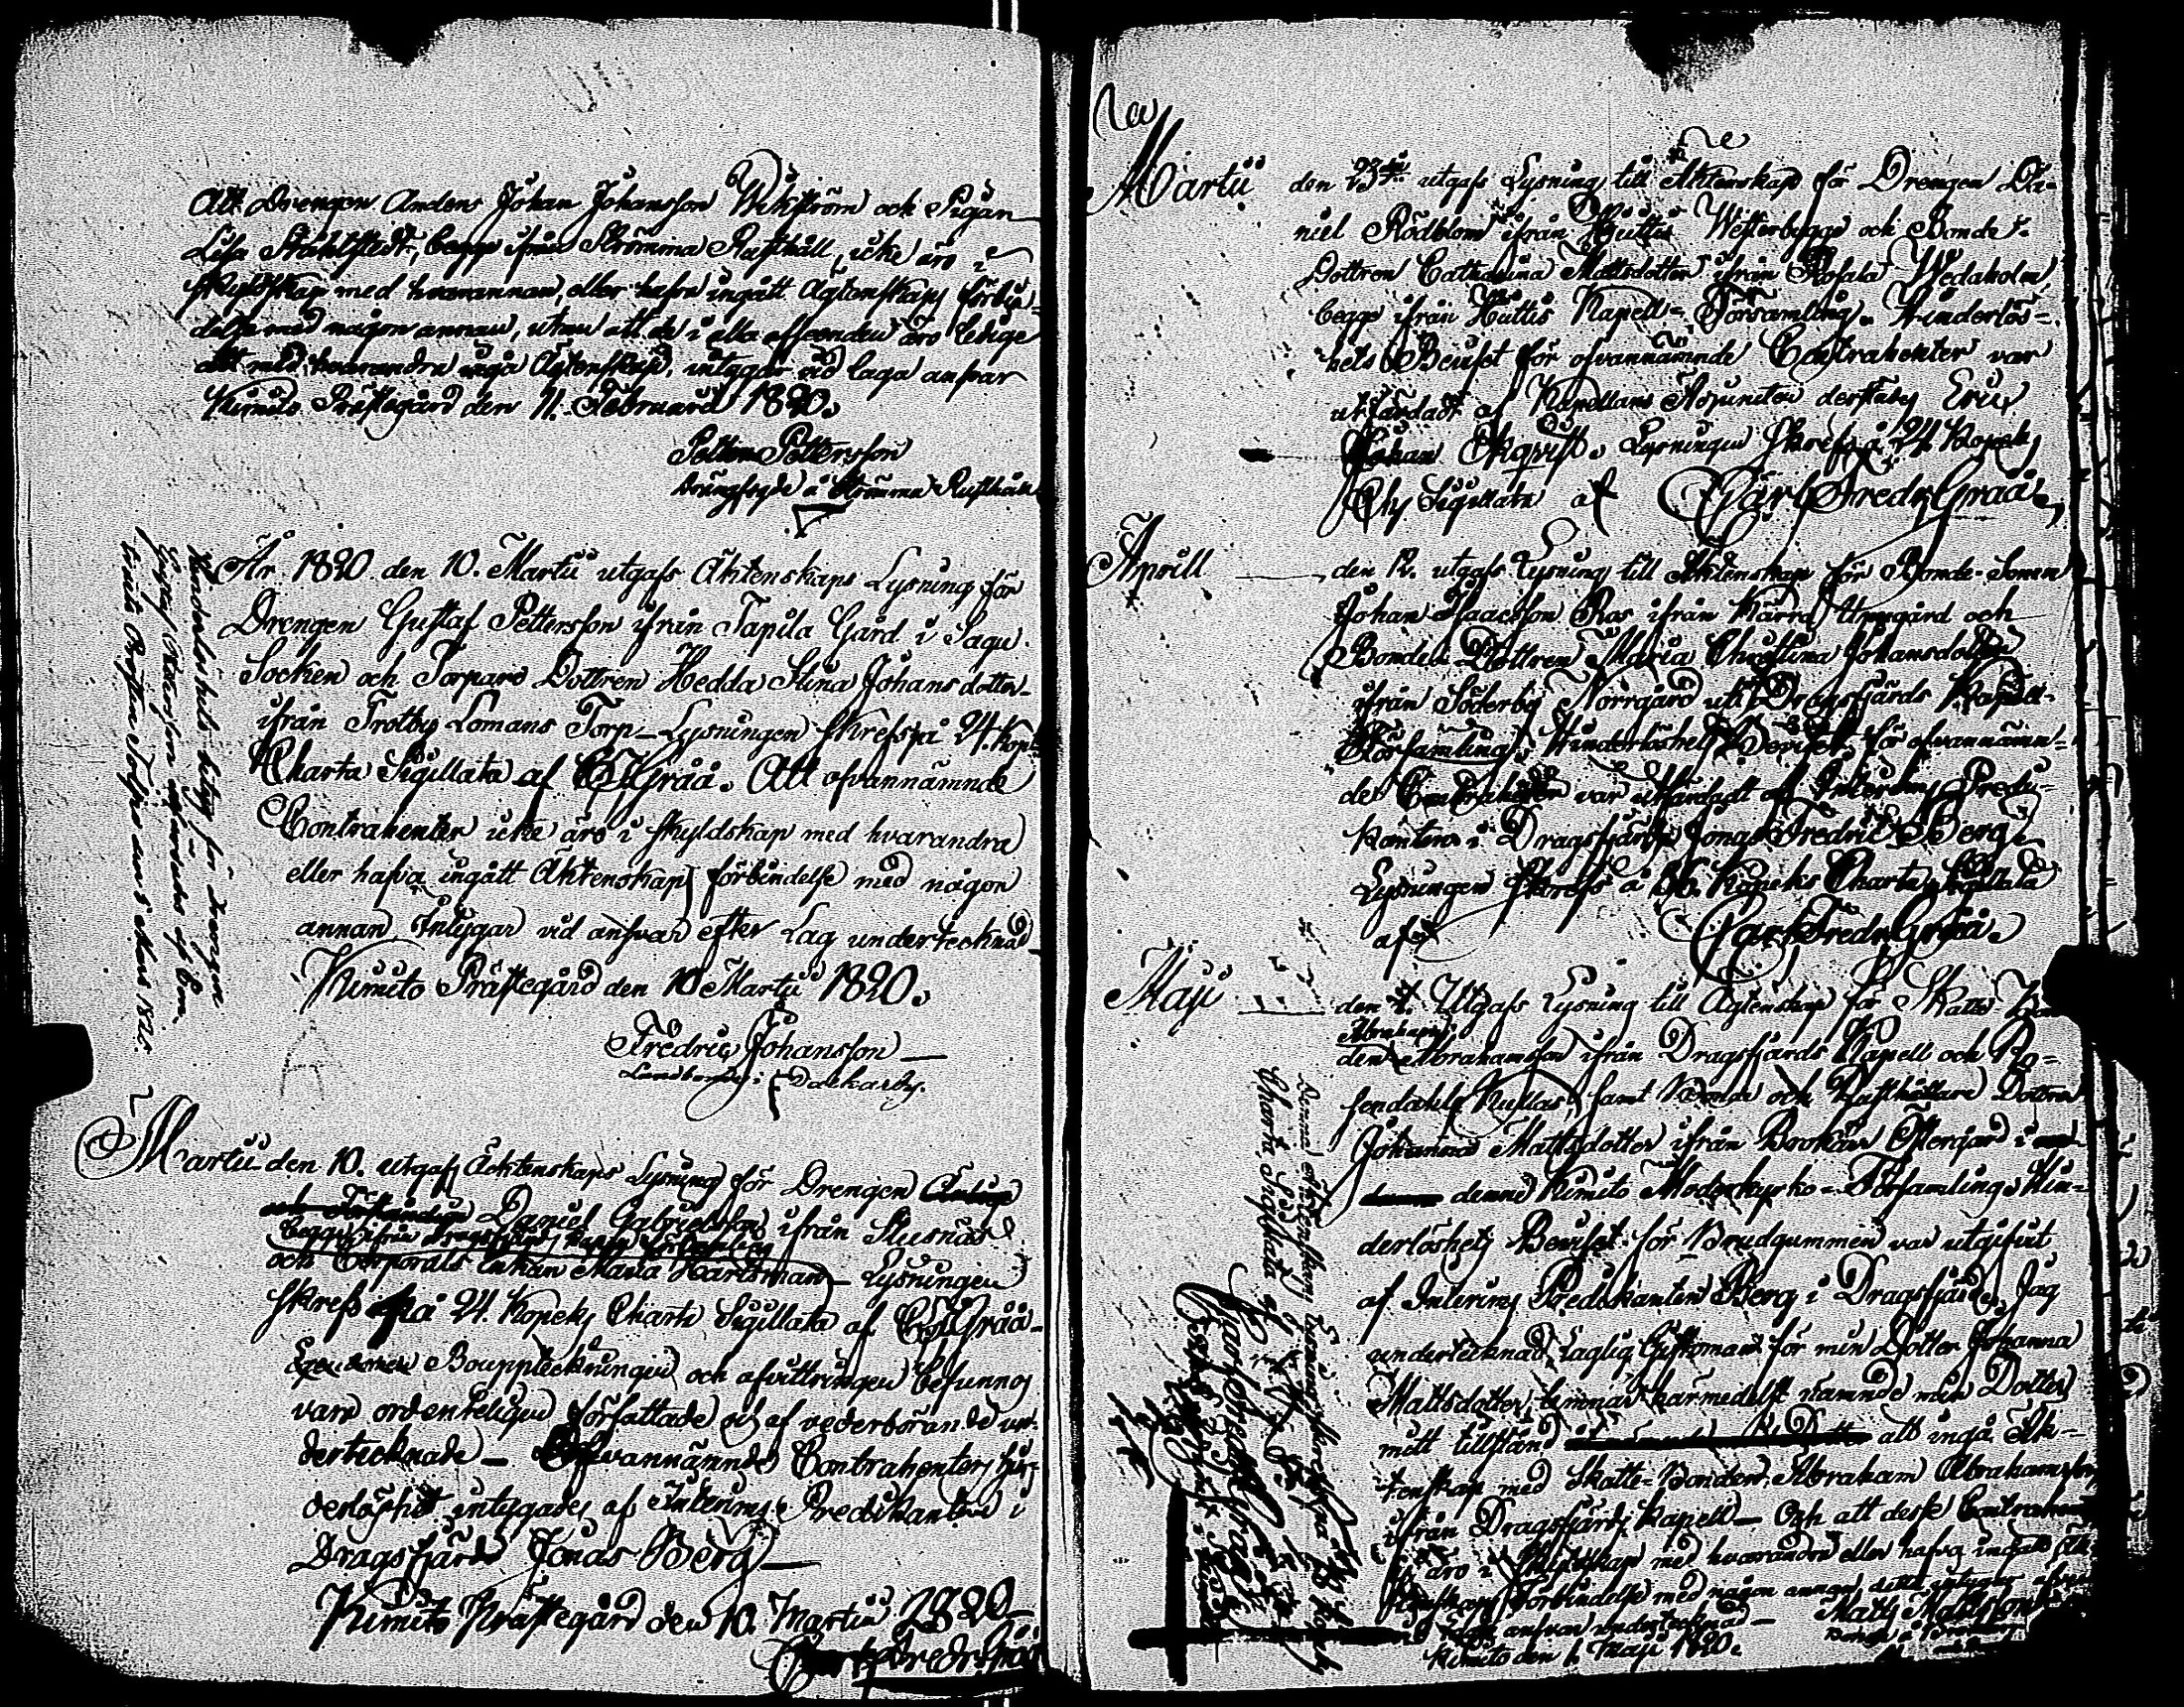 Att Drengen Anders Johan Johansson Wikström och Pigan
Lisa Stahlstedt, begge ifrån Strömma Rusthåll, icke äro i
skyldskap med hvarannan, eller hafva ingått Ägtenskaps förbin-
delse med någon annan, utan att de i alla afseenden äro ledige
att med hvarandra ingå Ägtenskap, intygar vid laga ansvar
Kimito Prästegård den 11. Februarii 1820.
Petter Pettersson
å Strömma Rusthåll
År 1820 den 10. Martii utgafs Äktenskaps Lysning för
Drengen Gustaf Pettersson ifrån Tapila Gård i Sagu
Socken och Torpare Dottren Hedda Stina Johansdotter
ifrån Trotby Lomans Torp – Lysningen skrefs på 24. Kop:
Charta Sigillata af CFGråå. Att ofvannämnde
Contrahenter icke äro i skyldskap med hvarandra
eller hafva ingått Äktenskaps förbindelse med någon
annan, Intygar vid ansvar efter Lag undertecknad
Kimito Prästegård den 10 Martii 1820.
Fredric Johansson
Landbonde i
Hinderlöshets betyg för Drengen
Gustaf Pettersson utfärdades af
den 5 Mars 1820.
Martii den 10. utgafs Äcktenskaps Lysning för Drengen
Daniel Gabrielsson ifrån Stusnäs
begge ifrån Dragsfjärds Kapell Församling
och Corporals Enkan Maria Hartsman – Lysningen
skrefs på 24. Kopeks Charta Sigillata af CFGråå –
Bouppteckningen och afvittringen befunnos
vara ordenteligen författade och af vederbörande un-
dertecknade – Ofvannämnde Contrahenters hin-
derlöshet intygades af Interims Predikanten i
Dragsfjärd Jonas Berg –
Kimito Prästegård den 10. Martii 1820 –
Carl Fredr. Gråå
Martii den 23die utgafs Lysning till Äktenskap för Drengen Da-
niel Rödblom ifrån Hüttis Westerbygge och Bonde-
Dottren Catharina Mattsdotter ifrån Rosala Wedaholm,
begge ifrån Hüttis Kapell-Församling. Hinderlös-
hets Beviset för ofvannämnde Contrahenter var
utfärdadt af Kapellans Adjuncten derstädes Eric
Johan Ekqvist. Lysningen skrefs å 24 Kopeks
Ch. Sigillata af Carl Fredr. Gråå
Aprill den 12. utgafs Lysning till Äktenskap för Bonde-Sonen
Johan Isaacsson Ros ifrån Kärra Urmgård och
Bonde Dottren Maria Christina Johansdotter
ifrån Söderby Norrgård uti Dragsfjärds Kapell-
Församling. Hinderlöshets Beviset för ofvannämn-
de Contrahenter var utfärdadt af Interims Predi-
kanten i Dragsfjärd Jonas Fredric Berg.
Lysningen skrefs å Kopeks Charta Sigillata
af Carl Fredr. Gråå.
Maji den 1. Utgafs Lysning till Ägtenskap för Skatte-Bon
Abraham
den Abrahamsson ifrån Dragsfjärds Kapell och Ro-
sendahls Kullas, samt Bonde och Rusthållare Dottren
Johanna Mattsdotter ifrån Brokärr Östergård i
denne Kimito Moderkyrko-Församling. Hin-
derlöshets Beviset för Brudgummen var utgifvit
af Interims Predikanten Berg i Dragsfjärd. Jag
undertecknad, laglig Giftoman för min Dotter Johanna
Mattsdotter, lemnar härmedelst nämnde min Dotter
mitt tillstånd att ingå Äk-
tenskap med Skatte-Bonden Abraham Abrahamsson
ifrån Dragsfjärds Kapell – Och att desse Contrahenter
ej äro i Skyldskap med hvarandra eller hafva ingått Äk
tenskaps Förbindelse med någon annan, detta intygar
ansvar undertecknad –
Kimito den 1. Maji 1820.
Matts Mattsson
Denna Ägtenskaps Lysning skrefs på Kopeks
Charta Sigillata af
Carl Fredr. Gråå